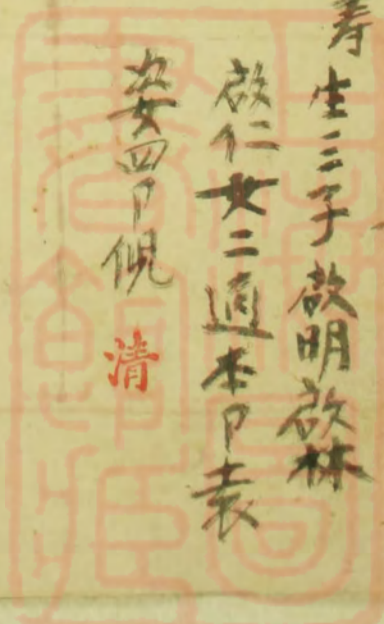 寿生三子啟明啟林
啟仁女二適本卩袁
姿四卩倪
清